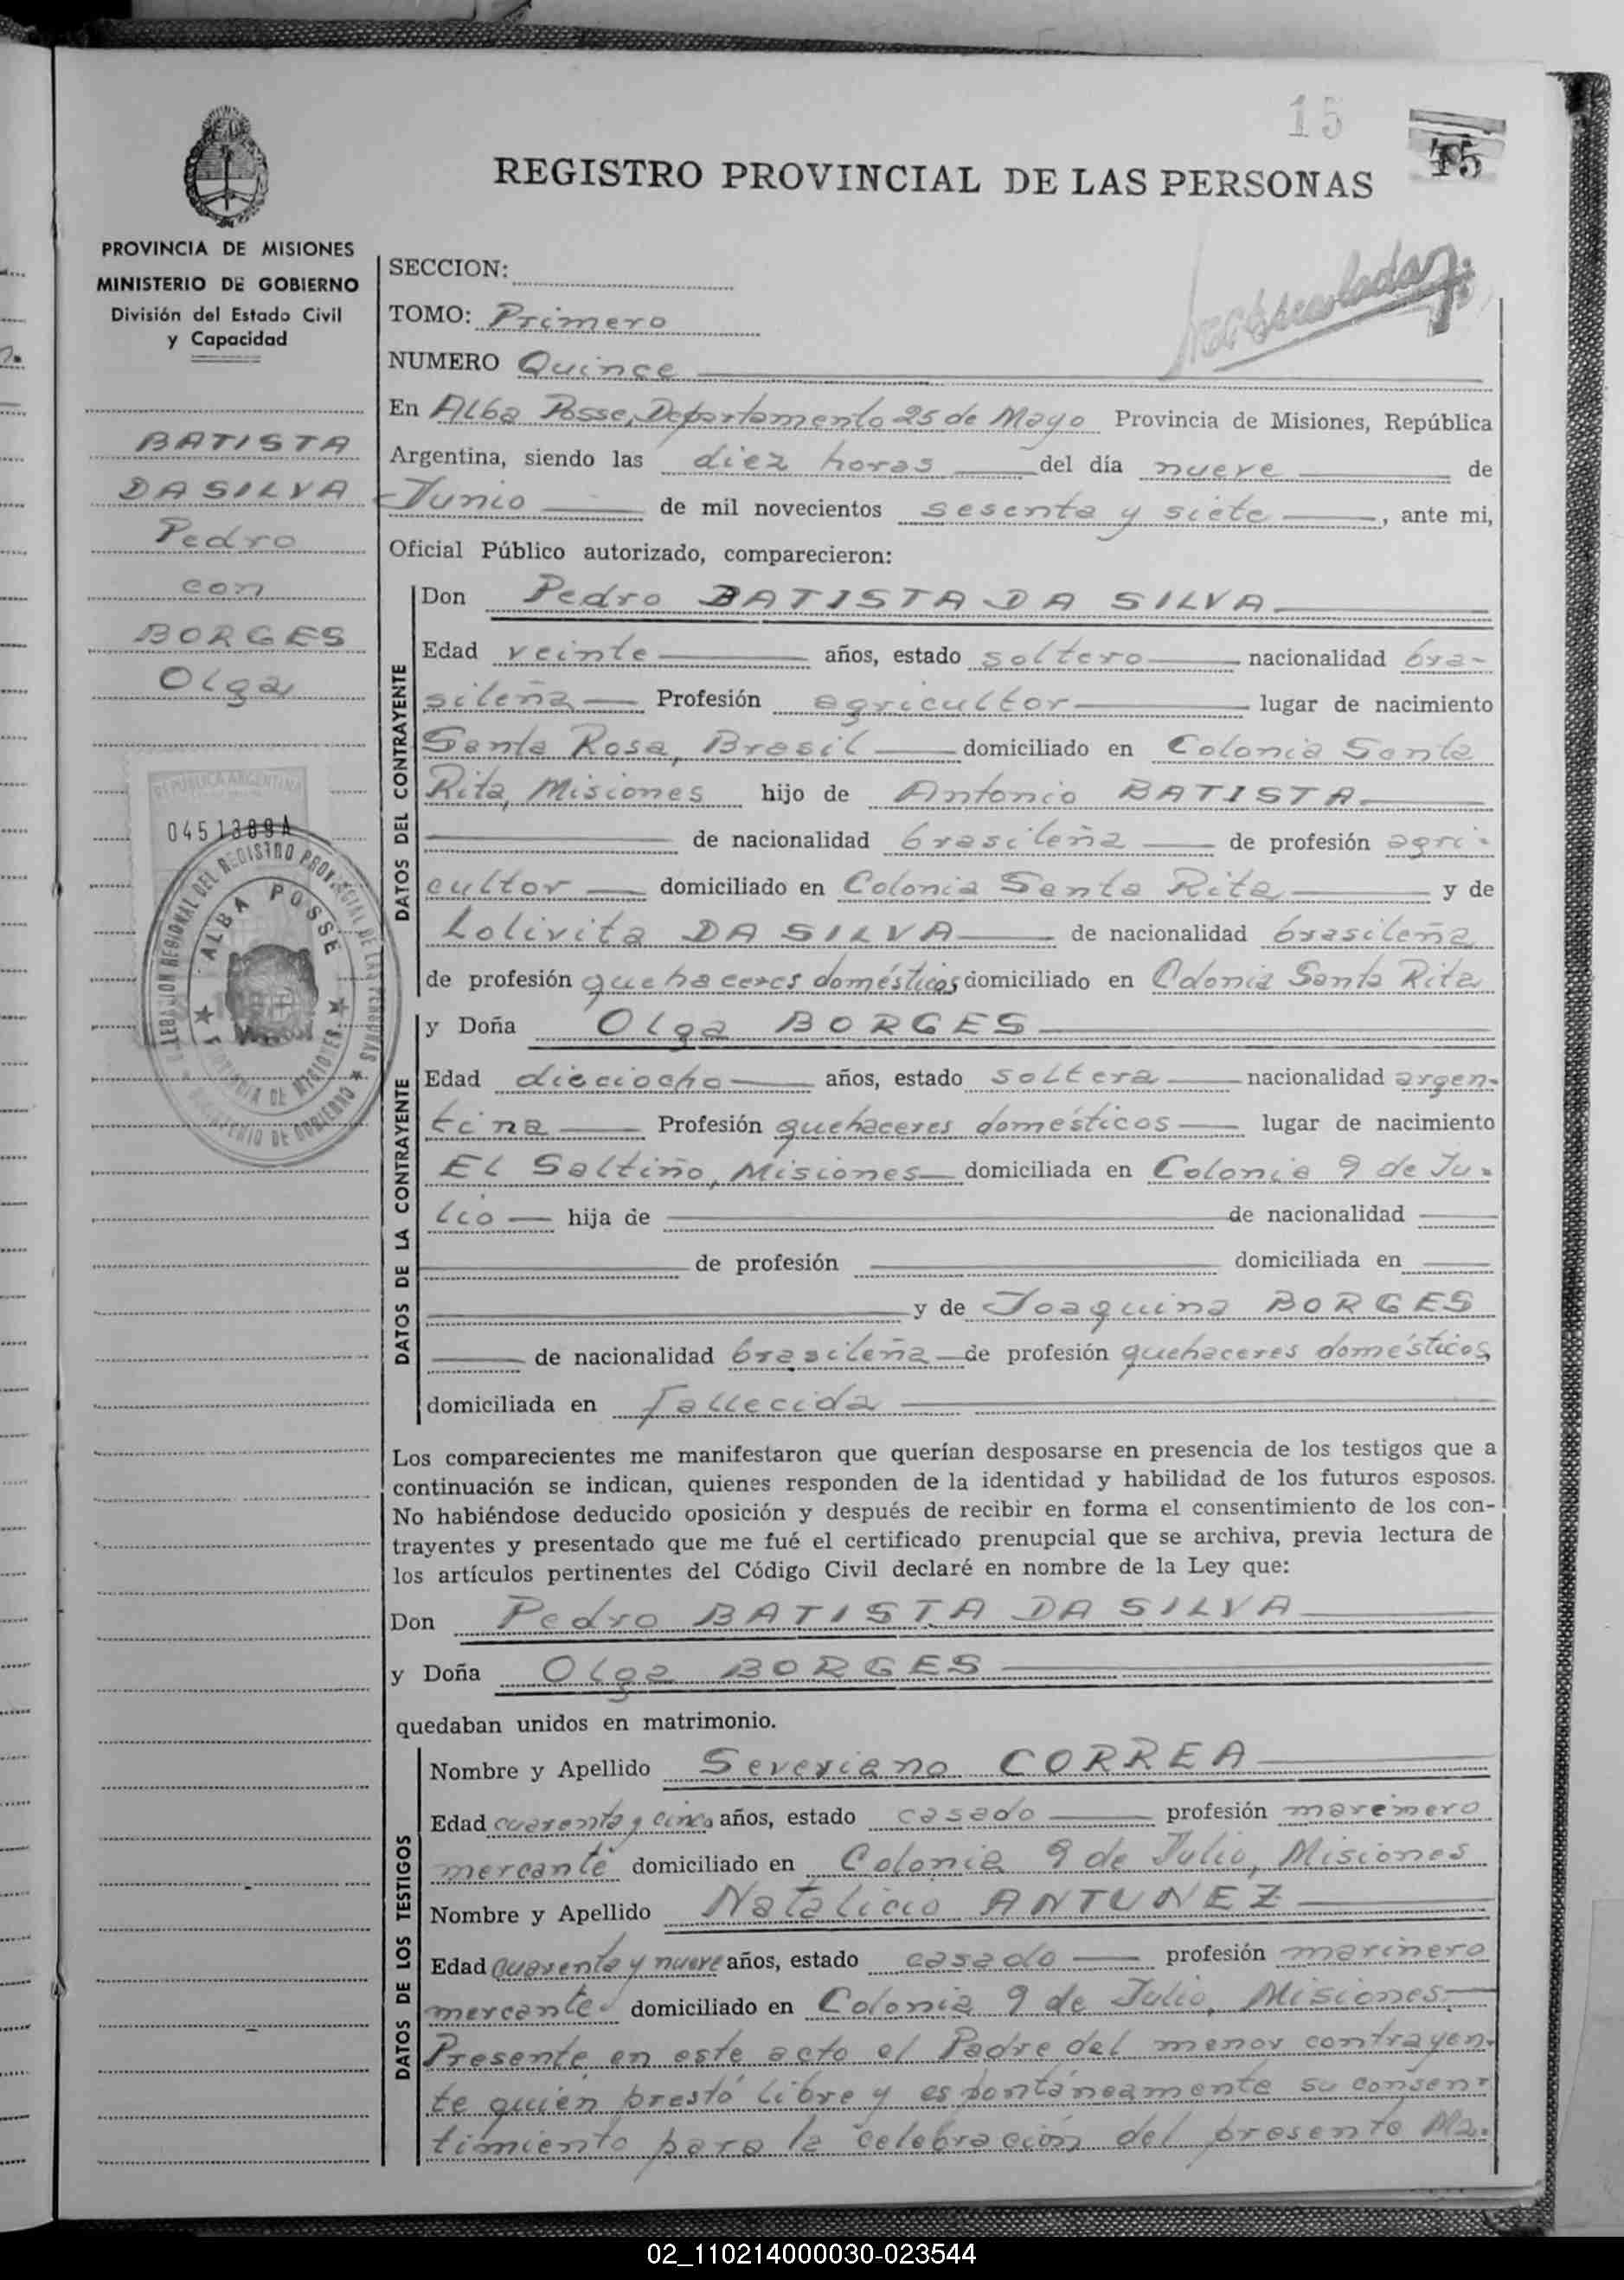 15
15
REGISTRO PROVINCIAL DE LAS PERSONAS
PROVINCIA DE MISIONES
MINISTERIO DE GOBIERNO
División del Estado Civil
y Capacidad
BATISTA
DA SILVA
Pedro
con
BORGES
Olga
REPUBLICA ARGENTINA
0451389A
DELEGACION REGIONAL DEL REGISTRO PROVINCIAL DE LAS PERSONAS
ALBA POSSE
PROVINCIA DE MISIONES
MINISTERIO DE GOBIERNO
SECCION:
TOMO: Primero
NUMERO Quince
En Alba Posse, Departamento 25 de Mayo Provincia de Misiones, República
Argentina, siendo las diez horas del día nueve de
Junio de mil novecientos sesenta y siete, ante mi,
Oficial Público autorizado, comparecieron:
DATOS DEL CONTRAYENTE
Don Pedro BATISTA DA SILVA
Edad veinte años, estado soltero nacionalidad bra-
sileña Profesión agricultor lugar de nacimiento
Santa Rosa, Brasil domiciliado en Colonia Santa
Rita, Misiones hijo de Antonio BATISTA
de nacionalidad brasileña de profesión agri-
cultor domiciliado en Colonia Santa Rita y de
Lolivita DA SILVA de nacionalidad brasileña
de profesión quehaceres domésticos domiciliado en Colonia Santa Rita
DATOS DE LA CONTRAYENTE
y Doña Olga BORGES
Edad dieciocho años, estado soltera nacionalidad argen-
tina Profesión quehaceres domésticos lugar de nacimiento
El Saltiño, Misiones domiciliada en Colonia 9 de Ju-
lio hija de de nacionalidad
de profesión domiciliada en
y de Joaquina BORGES
de nacionalidad brasileña de profesión quehaceres domésticos
domiciliada en fallecida
Los comparecientes me manifestaron que querían desposarse en presencia de los testigos que a
continuación se indican, quienes responden de la identidad y habilidad de los futuros esposos.
No habiéndose deducido oposición y después de recibir en forma el consentimiento de los con-
trayentes y presentado que me fué el certificado prenupcial que se archiva, previa lectura de
los artículos pertinentes del Código Civil declaré en nombre de la Ley que:
Don Pedro BATISTA DA SILVA
y Doña Olga BORGES
quedaban unidos en matrimonio.
DATOS DE LOS TESTIGOS
Nombre y Apellido Severiano CORREA
Edad cuarenta y cinco años, estado casado profesión marinero
mercante domiciliado en Colonia 9 de Julio, Misiones
Nombre y Apellido Natalicio ANTUNEZ
Edad cuarenta y nueve años, estado casado profesión marinero
mercante domiciliado en Colonia 9 de Julio, Misiones.
Presente en este acto el Padre del menor contrayen-
te quien prestó libre y espontáneamente su consen-
timiento para la celebración del presente Ma-
02_110214000030-023544